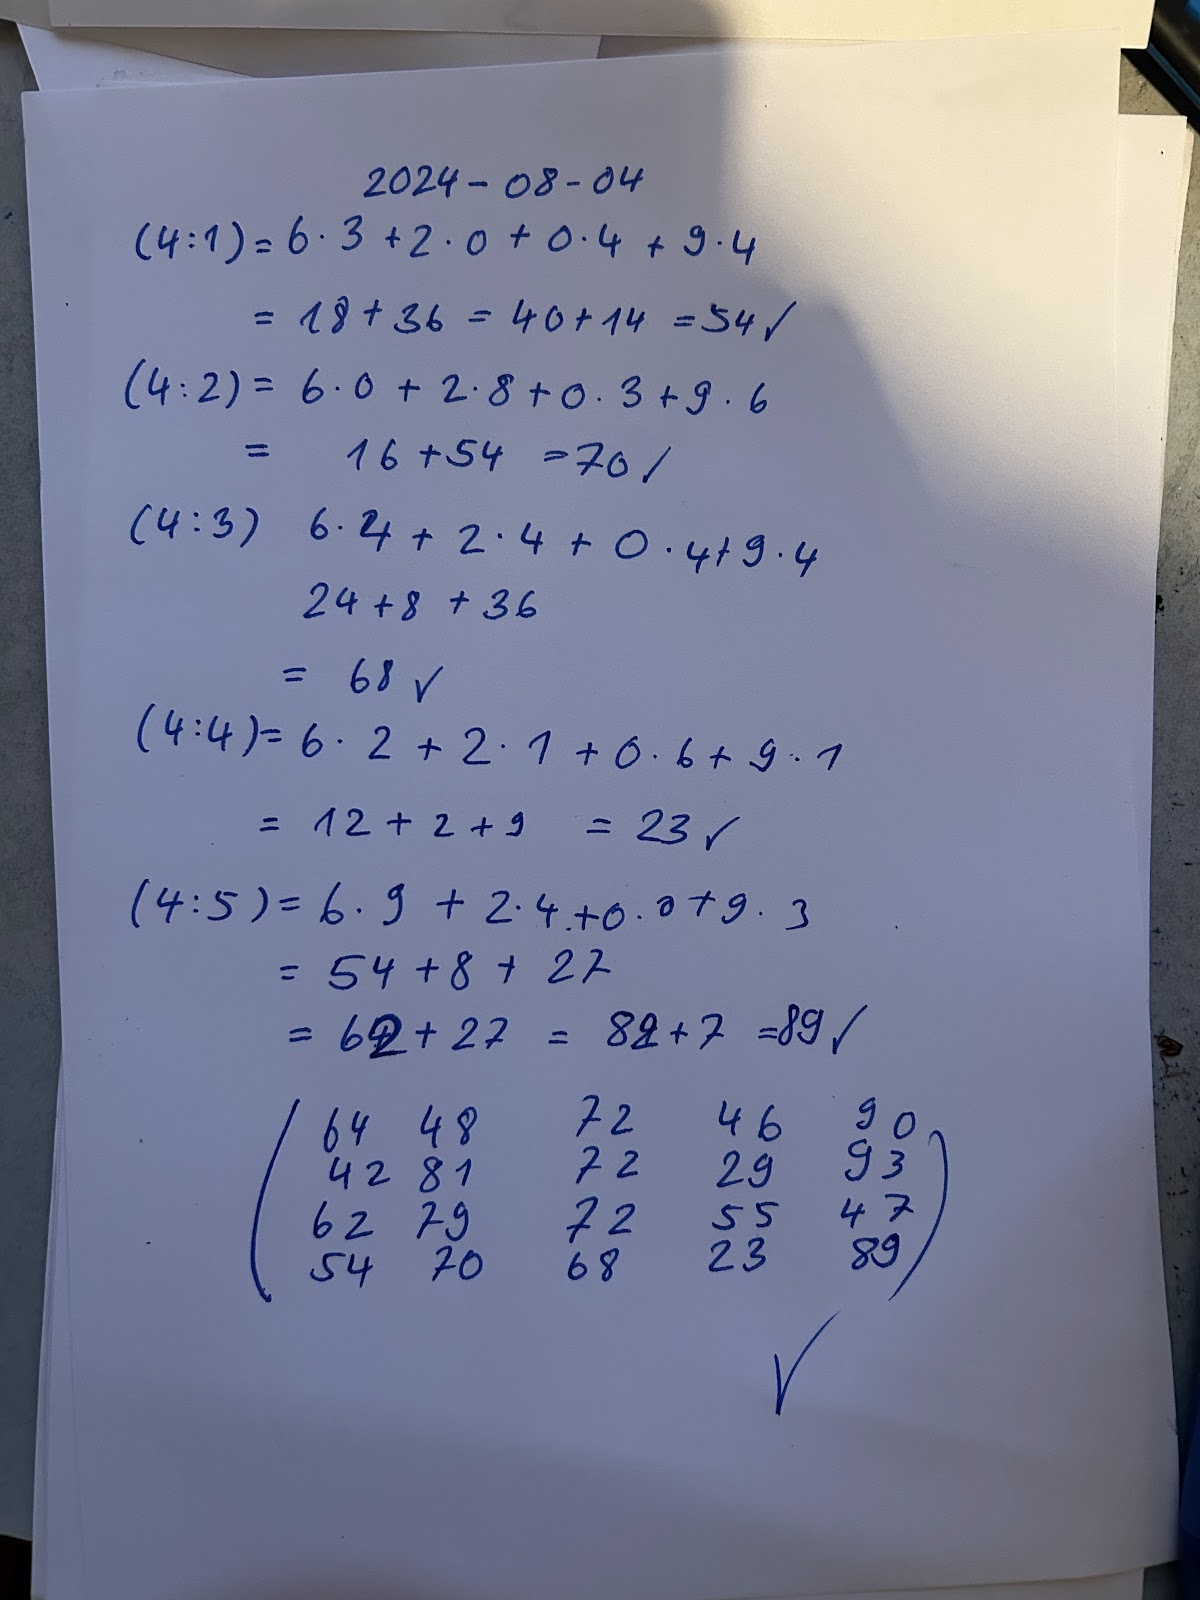 2024-08-04
(4:1) = 6·3 + 2·0 + 0·4 + 9·4
= 18 + 36 = 40 + 14 = 54 ✓
(4:2) = 6·0 + 2·8 + 0·3 + 9·6
= 16 + 54 = 70 ✓
(4:3) 6·4 + 2·4 + 0·4 + 9·4
24 + 8 + 36
= 68 ✓
(4:4) = 6·2 + 2·1 + 0·6 + 9·1
= 12 + 2 + 9 = 23 ✓
(4:5) = 6·9 + 2·4 + 0·0 + 9·3
= 54 + 8 + 27
= 62 + 27 = 82 + 7 = 89 ✓
64 48 72 46 90
42 81 72 29 93
62 79 72 55 47
54 70 68 23 89
✓